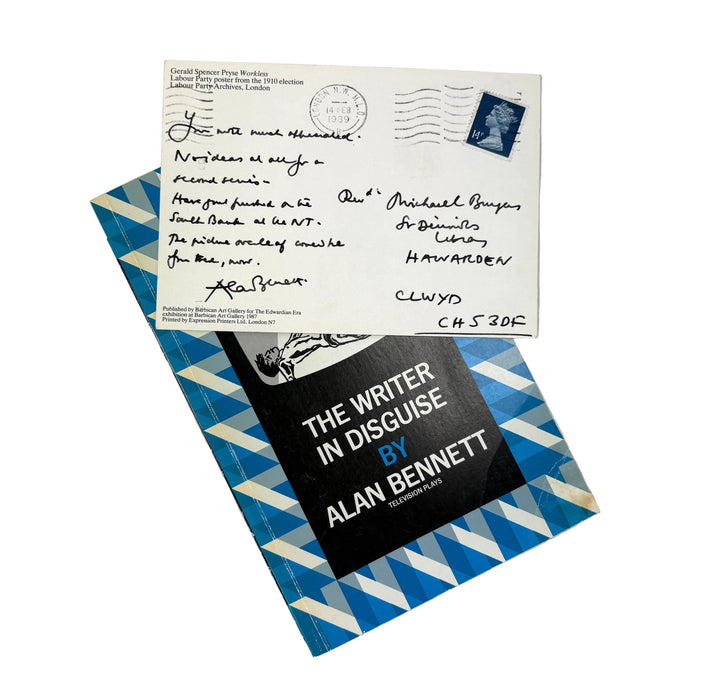 Gerald Spencer Pryse Workless
Labour Party poster from the 1910 election
Labour Party Archives, London
LONDON N.W.
14 FEB
1989
14P
Your note much appreciated.
No ideas at all for a
second series –
Have just finished on the
South Bank at the NT.
The picture overleaf could be
from there, now.
Alan Bennett
Revd. Michael Burgess
St Deiniol's
Library
HAWARDEN
CLWYD
CH5 3DF
Published by Barbican Art Gallery for The Edwardian Era
exhibition at Barbican Art Gallery 1987
Printed by Expression Printers Ltd, London N7
THE WRITER
IN DISGUISE
BY
ALAN BENNETT
TELEVISION PLAYS